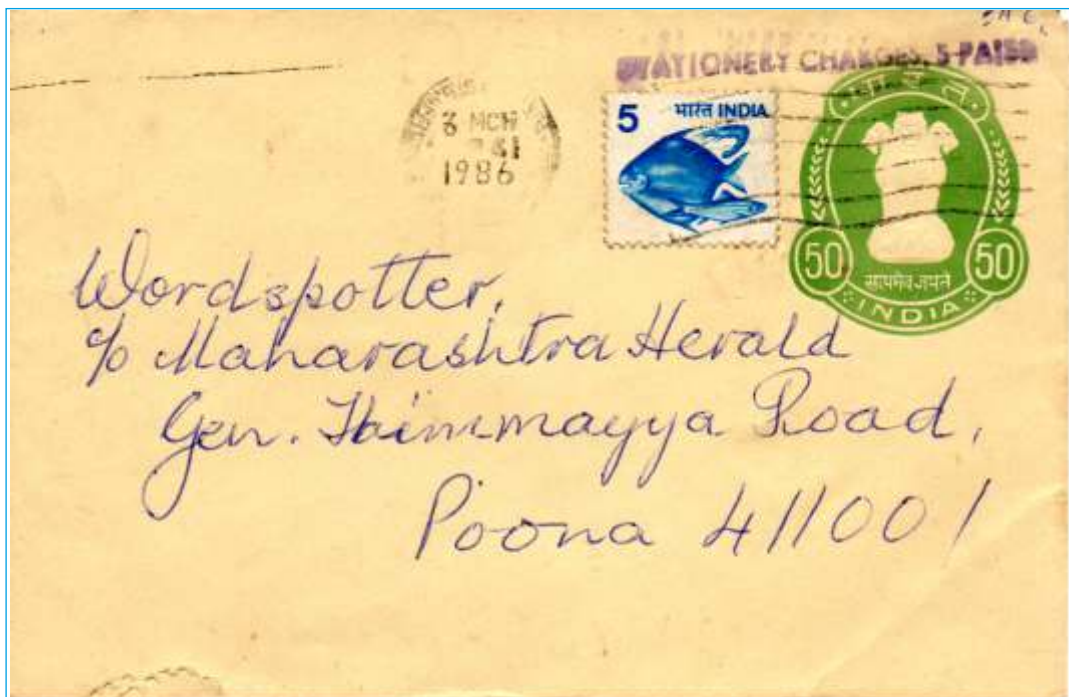 STATIONERY CHARGES. 5 PAISE
3 MCH
1986
5 भारत INDIA
50 50
सत्यमेव जयते
INDIA
Wordspotter,
c/o Maharashtra Herald
Gen. Thimmayya Road,
Poona 411001